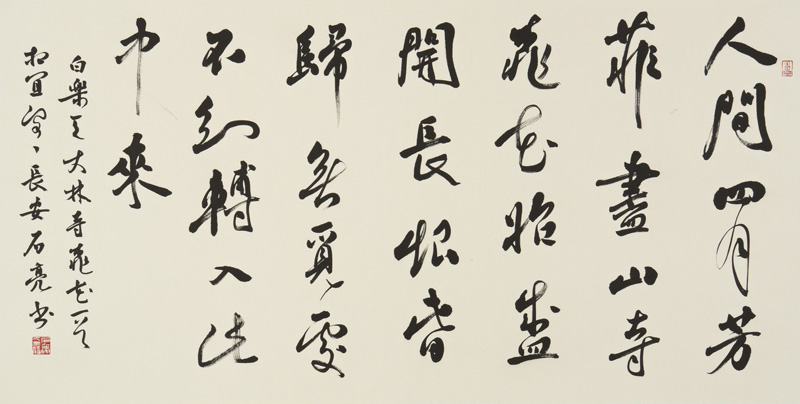 人間四月芳
菲盡山寺
桃花始盛
開長恨春
歸無覓處
不知轉入此
中來
白樂天大林寺桃花一首
長安石亮書